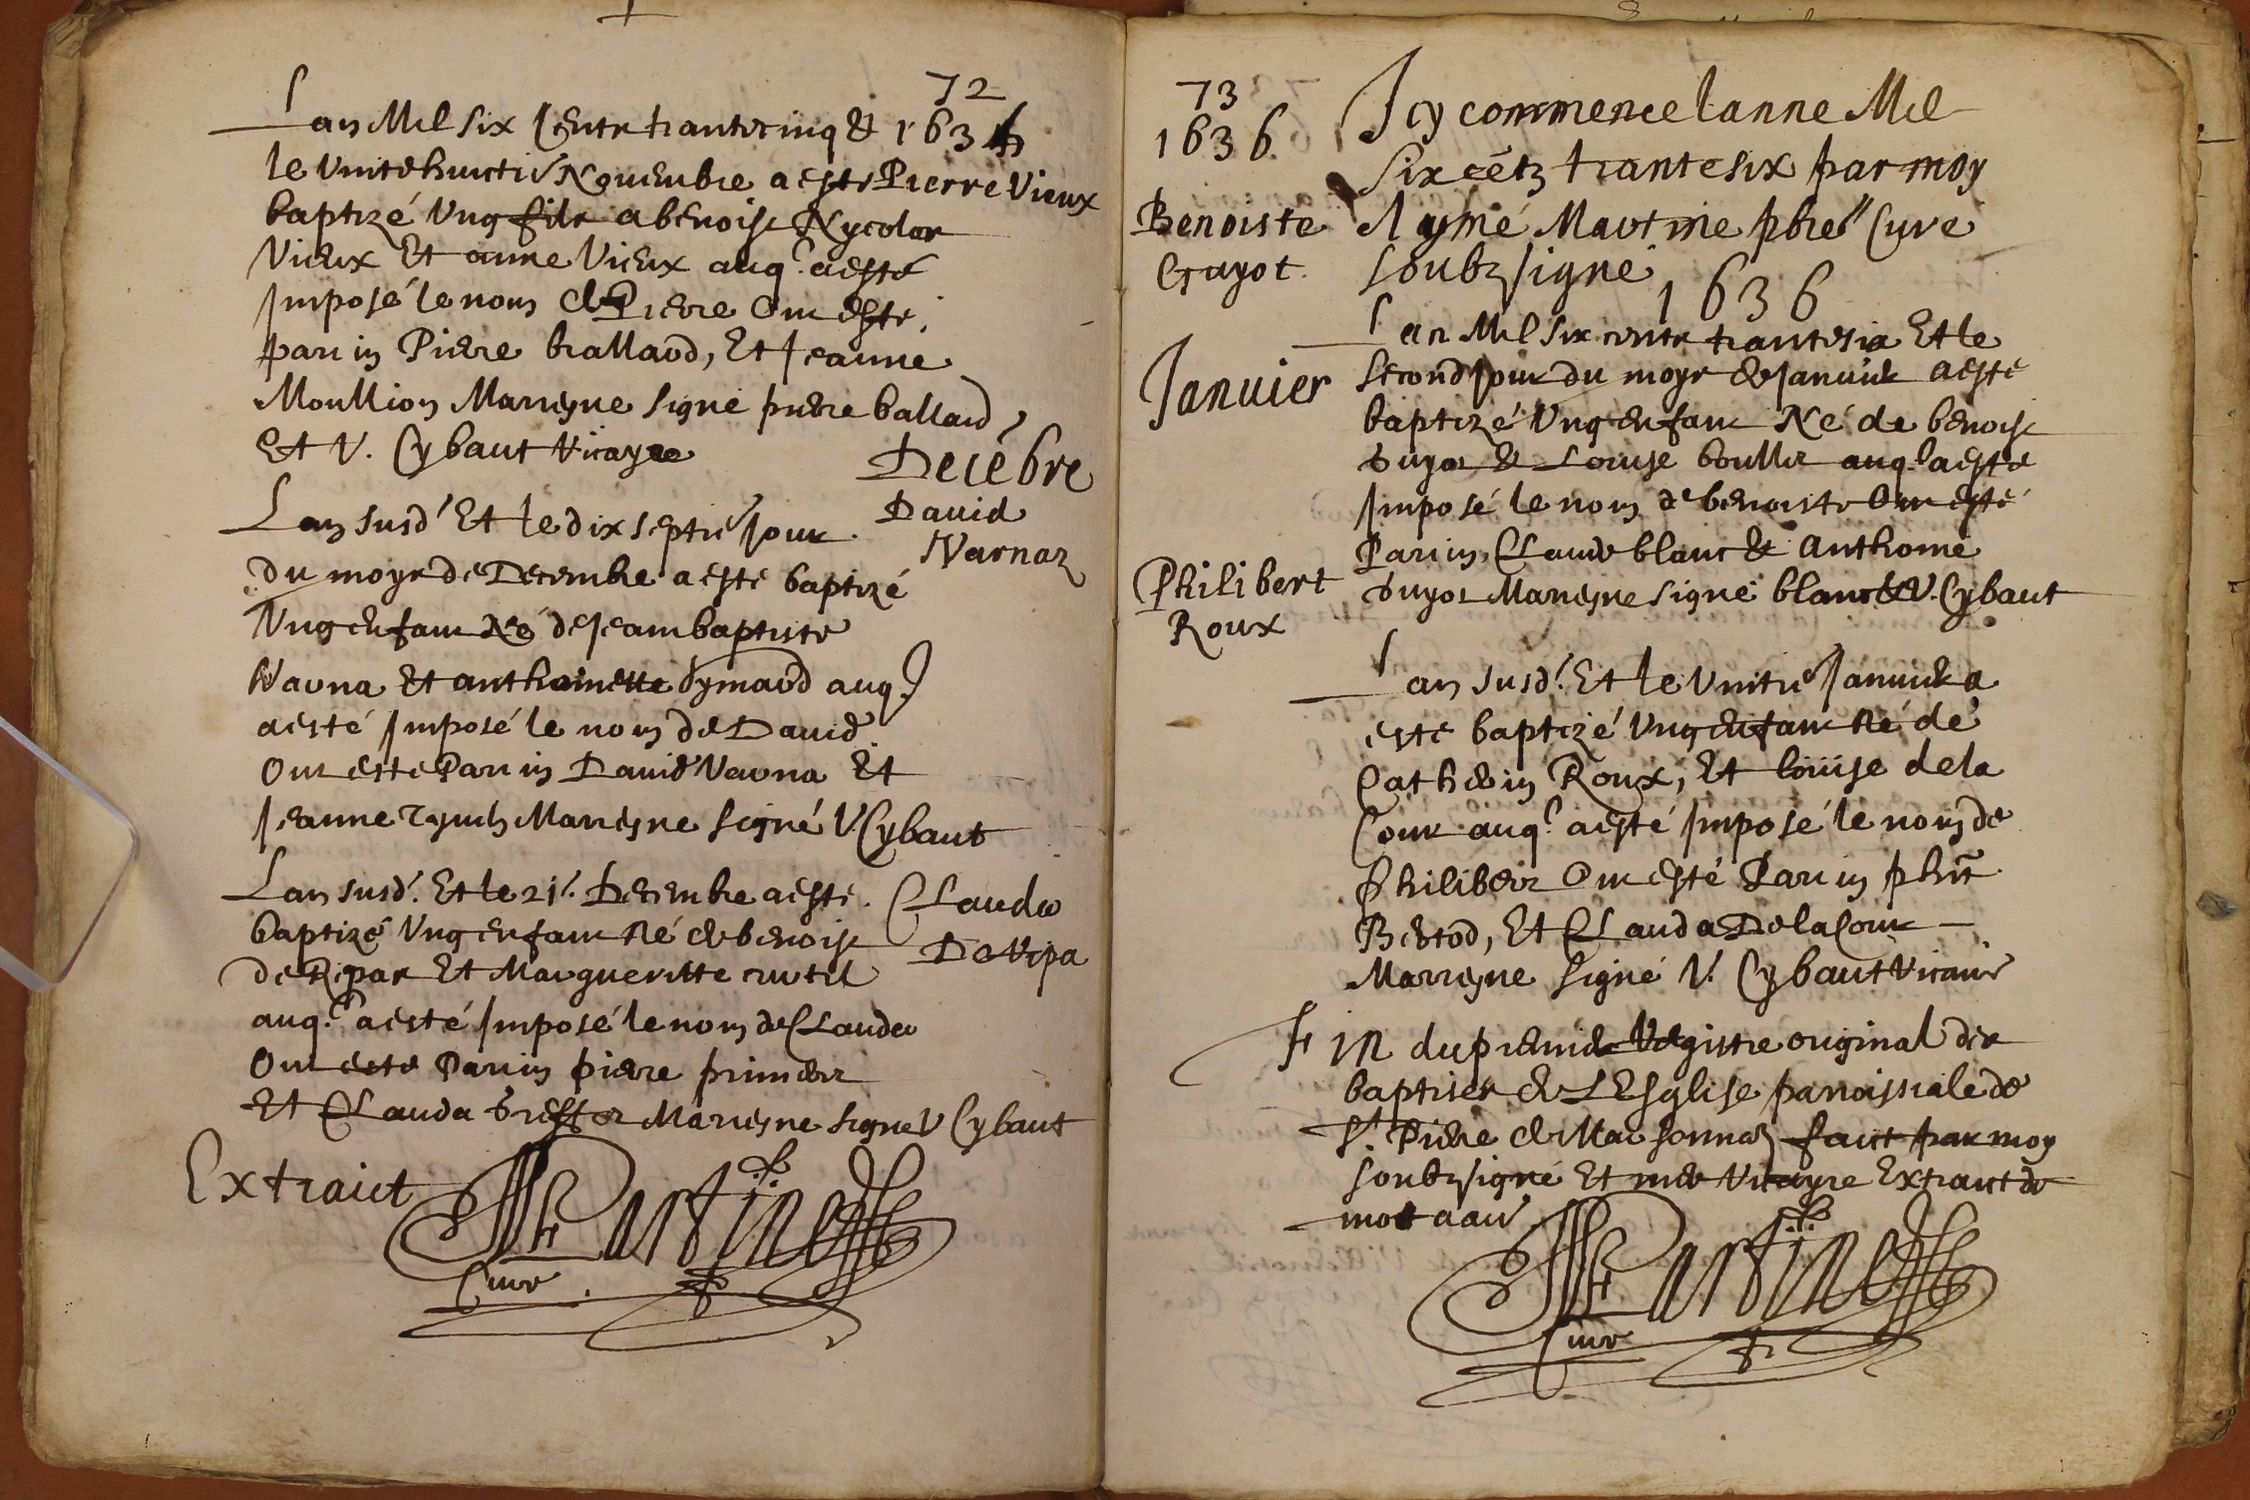 72
Lan Mil six Centz trante cinq & 1635
le vnitehuictie Nouembre a este Pierre Vieux
baptizé Vng filz a benoist Nycolas
Vieux Et anne Vieux auq.l a esté
Imposé le nom de Pierre Ont esté
parrin Pierre ballaod, Et Jeanne
Moullion Marrejne signé pierre ballaod
et V. Cybaut Vicayre
Decebre
David
Varnaz
Lan susd' Et le dix septie Jour
du moys de Decembre a esté baptizé
Vng enfant Né de Jean baptiste
Varna Et anthoinette Gymaod auq.l
a esté Imposé le nom de David
Ont esté Parrin David Varna Et
Jeanne Marrejne signé V. Cybaut
Lan susd'. Et le 21e. Decembre a esté
Clauda
De Ripa
baptizé Vng enfant Né de benoist
de Ripaz Et Margueritte
auq.l a esté Imposé le nom de Clauda
Ont esté Parrin pierre
Et Clauda Marrejne signé V Cybaut
Extraict
Martine
Curé
73
1636
Icy commence lanne Mil
Six cētz trante six par moy
Aymé Martine pbre Curé
soubz signé
1636
Benoiste
Guyot
Lan Mil six centz trante six Et le
Januier
second Jour du moys de Januier a esté
baptizé Vng enfant Né de benoist
Guyot & Louise boullet auq.l a esté
Imposé le nom de benoiste Ont esté
Parrin, Claude blanc & Anthoine
Guyot Marrejne signé blanc & V. Cybaut
Philibert
Roux
Lan susd'. Et le Vnitie Januier a
esté baptizé Vng enfant Né de
Catherin Roux, Et louise de la
Cour auq.l a esté Imposé le nom de
Philibert Ont esté Parrin phīt
Bertod, Et Clauda De la Cour
Marrejne signé V. Cybaut Vicaire
Fin du premier Registre original des
baptises de LEsglise parroissiale de
St. Pierre de Marsonnaz faict par moy
soubz signé Et mes Vicayre Extraict de
mot a aut.
Martine
Curé